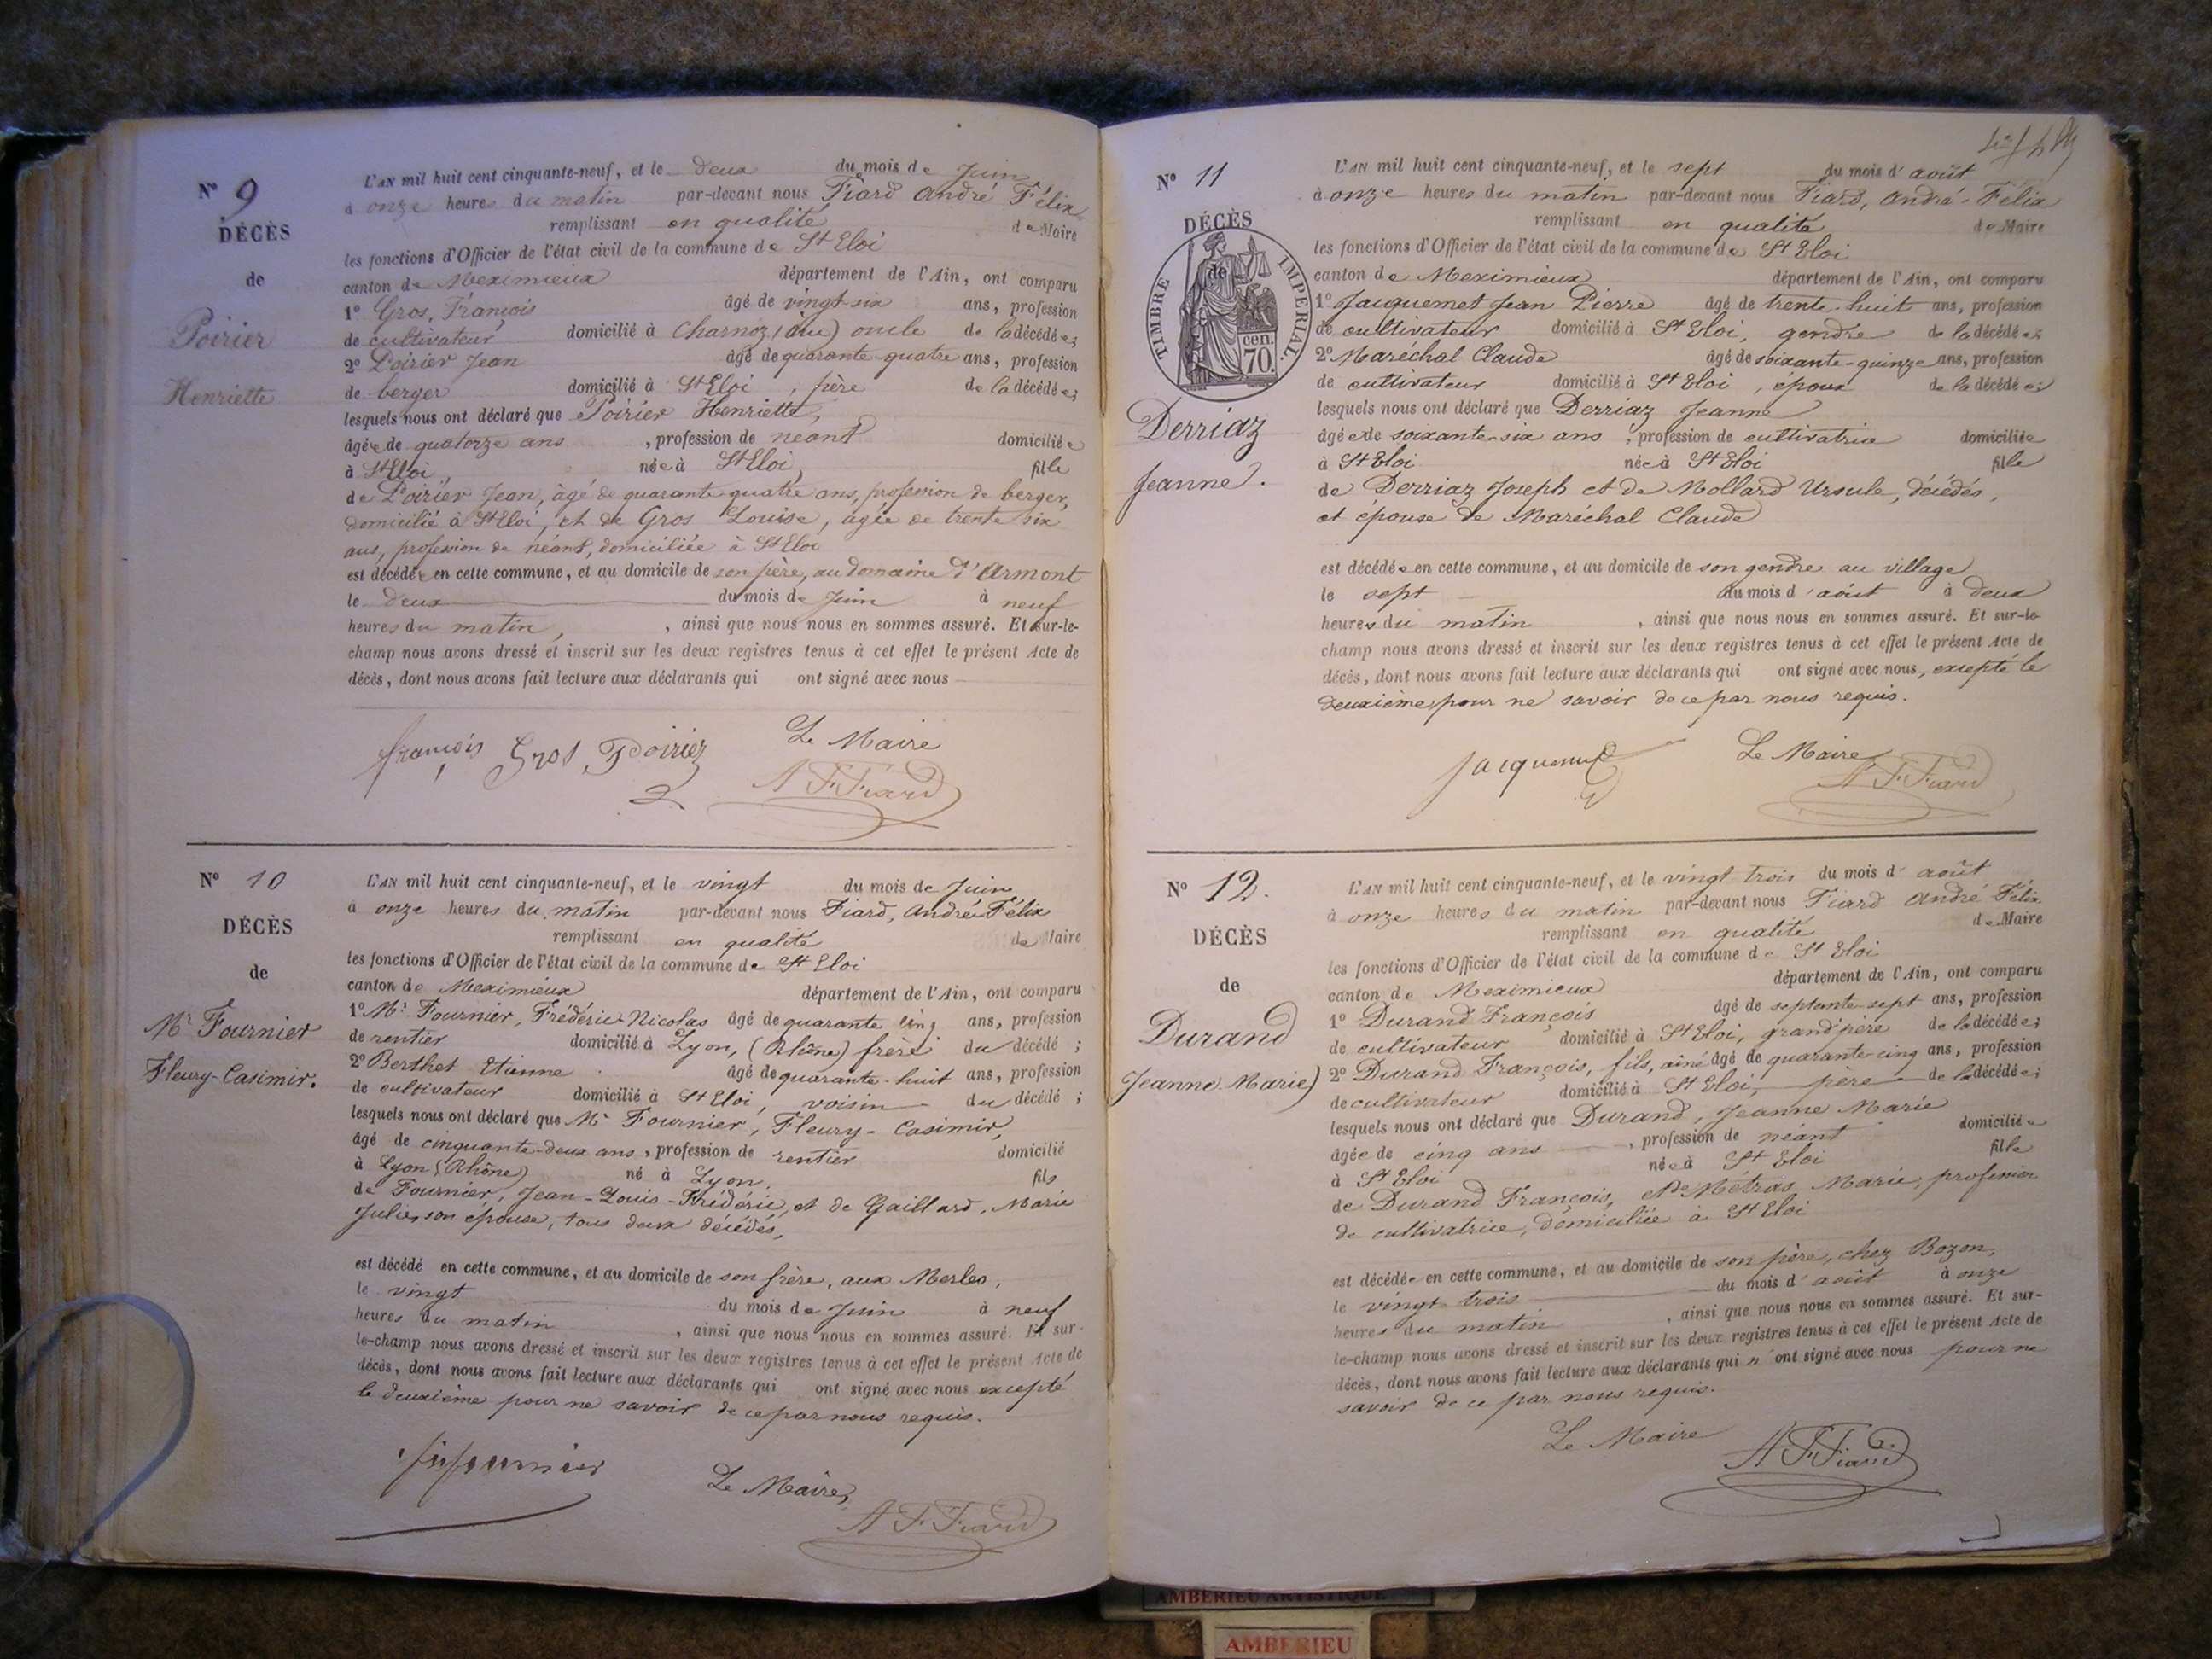 N° 9
DÉCÈS
de
Poirier
Henriette
L'AN mil huit cent cinquante-neuf, et le deux du mois de Juin
à onze heures du matin par-devant nous Fiard André Félix
remplissant en qualité de Maire
les fonctions d'Officier de l'état civil de la commune de St Eloi
canton de Meximieux département de l'Ain, ont comparu
1° Gros, François âgé de vingt-six ans, profession
de cultivateur domicilié à Charnoz (Ain) oncle de la décédée;
2° Poirier Jean âgé de quarante quatre ans, profession
de berger domicilié à St Eloi, père de la décédée;
lesquels nous ont déclaré que Poirier Henriette,
âgée de quatorze ans, profession de néant domiciliée
à St Eloi, née à St Eloi, fille
de Poirier Jean, âgé de quarante quatre ans, profession de berger,
domicilié à St Eloi, et de Gros Louise, âgée de trente six
ans, profession de néant, domiciliée à St Eloi
est décédée en cette commune, et au domicile de son père, au domaine d'Armont
le deux du mois de Juin à neuf
heures du matin, , ainsi que nous nous en sommes assuré. Et sur-le-
champ nous avons dressé et inscrit sur les deux registres tenus à cet effet le présent Acte de
décès, dont nous avons fait lecture aux déclarants qui ont signé avec nous
françois Gros Poirier Le Maire
A F Fiard
N° 10
DÉCÈS
de
Mr Fournier
Fleury-Casimir.
L'AN mil huit cent cinquante-neuf, et le vingt du mois de Juin
à onze heures du matin par-devant nous Fiard, André Félix
remplissant en qualité de Maire
les fonctions d'Officier de l'état civil de la commune de St Eloi
canton de Meximieux département de l'Ain, ont comparu
1° Mr Fournier, Frédéric Nicolas âgé de quarante cinq ans, profession
de rentier domicilié à Lyon, (Rhône) frère du décédé ;
2° Berthet Etienne âgé de quarante-huit ans, profession
de cultivateur domicilié à St Eloi, voisin du décédé ;
lesquels nous ont déclaré que Mr Fournier, Fleury-Casimir,
âgé de cinquante-deux ans, profession de rentier domicilié
à Lyon (Rhône) né à Lyon, fils
de Fournier, Jean-Louis-Frédéric, et de Gaillard, Marie
Julie, son épouse, tous deux décédés,
est décédé en cette commune, et au domicile de son frère, aux Merles,
le vingt du mois de Juin à neuf
heures du matin , ainsi que nous nous en sommes assuré. Et sur-
le-champ nous avons dressé et inscrit sur les deux registres tenus à cet effet le présent Acte de
décès, dont nous avons fait lecture aux déclarants qui ont signé avec nous excepté
le deuxième pour ne savoir de ce par nous requis.
fournier
Le Maire,
A F Fiard
N° 11
DÉCÈS
de
TIMBRE IMPERIAL.
70. cen.
Derriaz
Jeanne.
L'AN mil huit cent cinquante-neuf, et le sept du mois d'août
à onze heures du matin par-devant nous Fiard, André-Félix
remplissant en qualité de Maire
les fonctions d'Officier de l'état civil de la commune de St Eloi
canton de Meximieux département de l'Ain, ont comparu
1° Jacquemet Jean Pierre âgé de trente-huit ans, profession
de cultivateur domicilié à St Eloi, gendre de la décédée;
2° Maréchal Claude âgé de soixante-quinze ans, profession
de cultivateur domicilié à St Eloi, époux de la décédée;
lesquels nous ont déclaré que Derriaz Jeanne
âgée de soixante-six ans, profession de cultivatrice domiciliée
à St Eloi née à St Eloi fille
de Derriaz Joseph et de Mollard Ursule, décédés,
et épouse de Maréchal Claude
est décédée en cette commune, et au domicile de son gendre au village
le sept du mois d'août à deux
heures du matin , ainsi que nous nous en sommes assuré. Et sur-le-
champ nous avons dressé et inscrit sur les deux registres tenus à cet effet le présent Acte de
décès, dont nous avons fait lecture aux déclarants qui ont signé avec nous, excepté le
deuxième, pour ne savoir de ce par nous requis.
Jacquemet Le Maire
A F Fiard
N° 12.
DÉCÈS
de
Durand
Jeanne Marie
L'AN mil huit cent cinquante-neuf, et le vingt trois du mois d'août
à onze heures du matin par-devant nous Fiard André Félix
remplissant en qualité de Maire
les fonctions d'Officier de l'état civil de la commune de St Eloi
canton de Meximieux département de l'Ain, ont comparu
1° Durand François âgé de septante-sept ans, profession
de cultivateur domicilié à St Eloi, grand'père de la décédée;
2° Durand François, fils, aîné âgé de quarante-cinq ans, profession
de cultivateur domicilié à St Eloi, père de la décédée;
lesquels nous ont déclaré que Durand, Jeanne Marie
âgée de cinq ans , profession de néant domiciliée
à St Eloi née à St Eloi fille
de Durand François, et de Métras Marie, profession
de cultivatrice, domiciliée à St Eloi
est décédée en cette commune, et au domicile de son père, chez Bozon,
le vingt-trois du mois d'août à onze
heures du matin , ainsi que nous nous en sommes assuré. Et sur-
le-champ nous avons dressé et inscrit sur les deux registres tenus à cet effet le présent Acte de
décès, dont nous avons fait lecture aux déclarants qui n'ont signé avec nous pour ne
savoir de ce par nous requis.
Le Maire
A F Fiard
AMBERIEU ARTISTIQUE
AMBERIEU